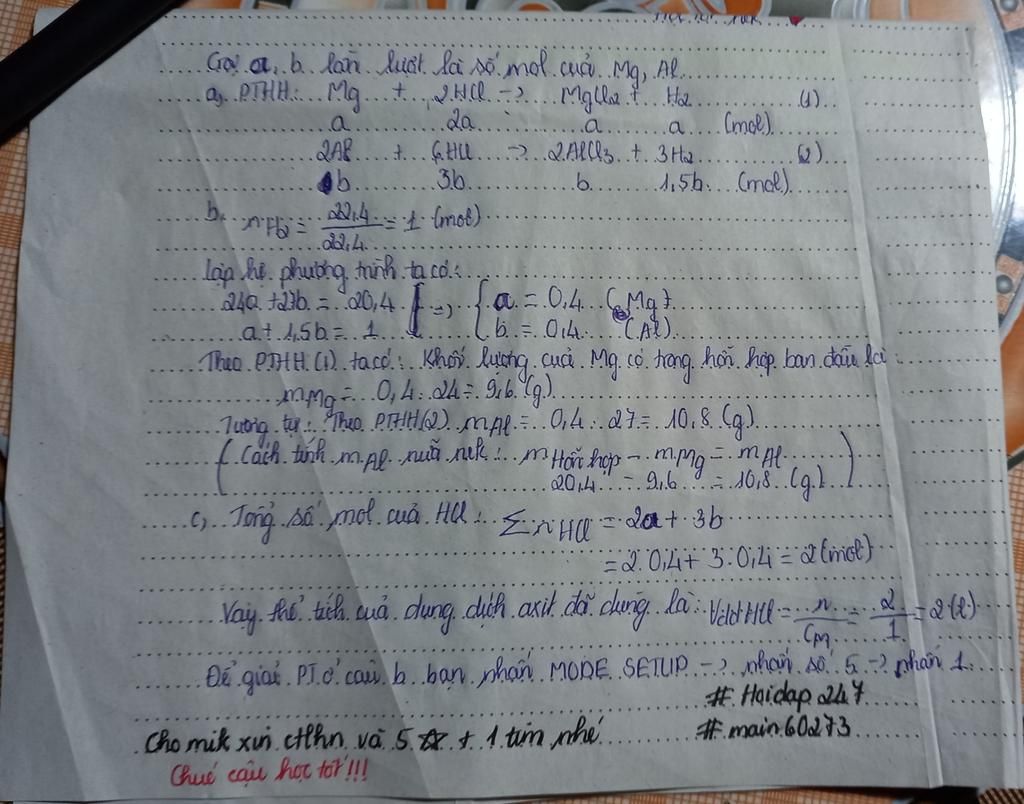 Gọi a, b lần lượt là số mol của Mg, Al
a, PTHH: Mg + 2HCl -> MgCl2 + H2 (1)
a 2a a a (mol)
2Al + 6HCl -> 2AlCl3 + 3H2 (2)
b 3b b 1,5b (mol)
b, nH2 = 22,4/22,4 = 1 (mol)
Lập hệ phương trình ta có:
24a + 27b = 20,4 } => { a = 0,4 (Mg)
a + 1,5b = 1 b = 0,4 (Al)
Theo PTHH (1) ta có: Khối lượng của Mg có trong hỗn hợp ban đầu là:
mMg = 0,4 . 24 = 9,6 (g)
Tương tự: Theo PTHH(2) mAl = 0,4 . 27 = 10,8 (g)
(Cách tính mAl nữa nek: mHỗn hợp - mMg = mAl
20,4 - 9,6 = 10,8 (g))
c, Tổng số mol của HCl: ΣnHCl = 2a + 3b
= 2.0,4 + 3.0,4 = 2 (mol)
Vậy thể tích của dung dịch axit đã dùng là: VddHCl = n/CM = 2/1 = 2 (l)
Để giải PT ở câu b bạn nhấn MODE SETUP -> nhấn số 5 -> nhấn 1.
# Hoidap 247
# main60273
Cho mik xin ctlhn và 5 ☆ + 1 tim nhé
Chúc cậu học tốt!!!